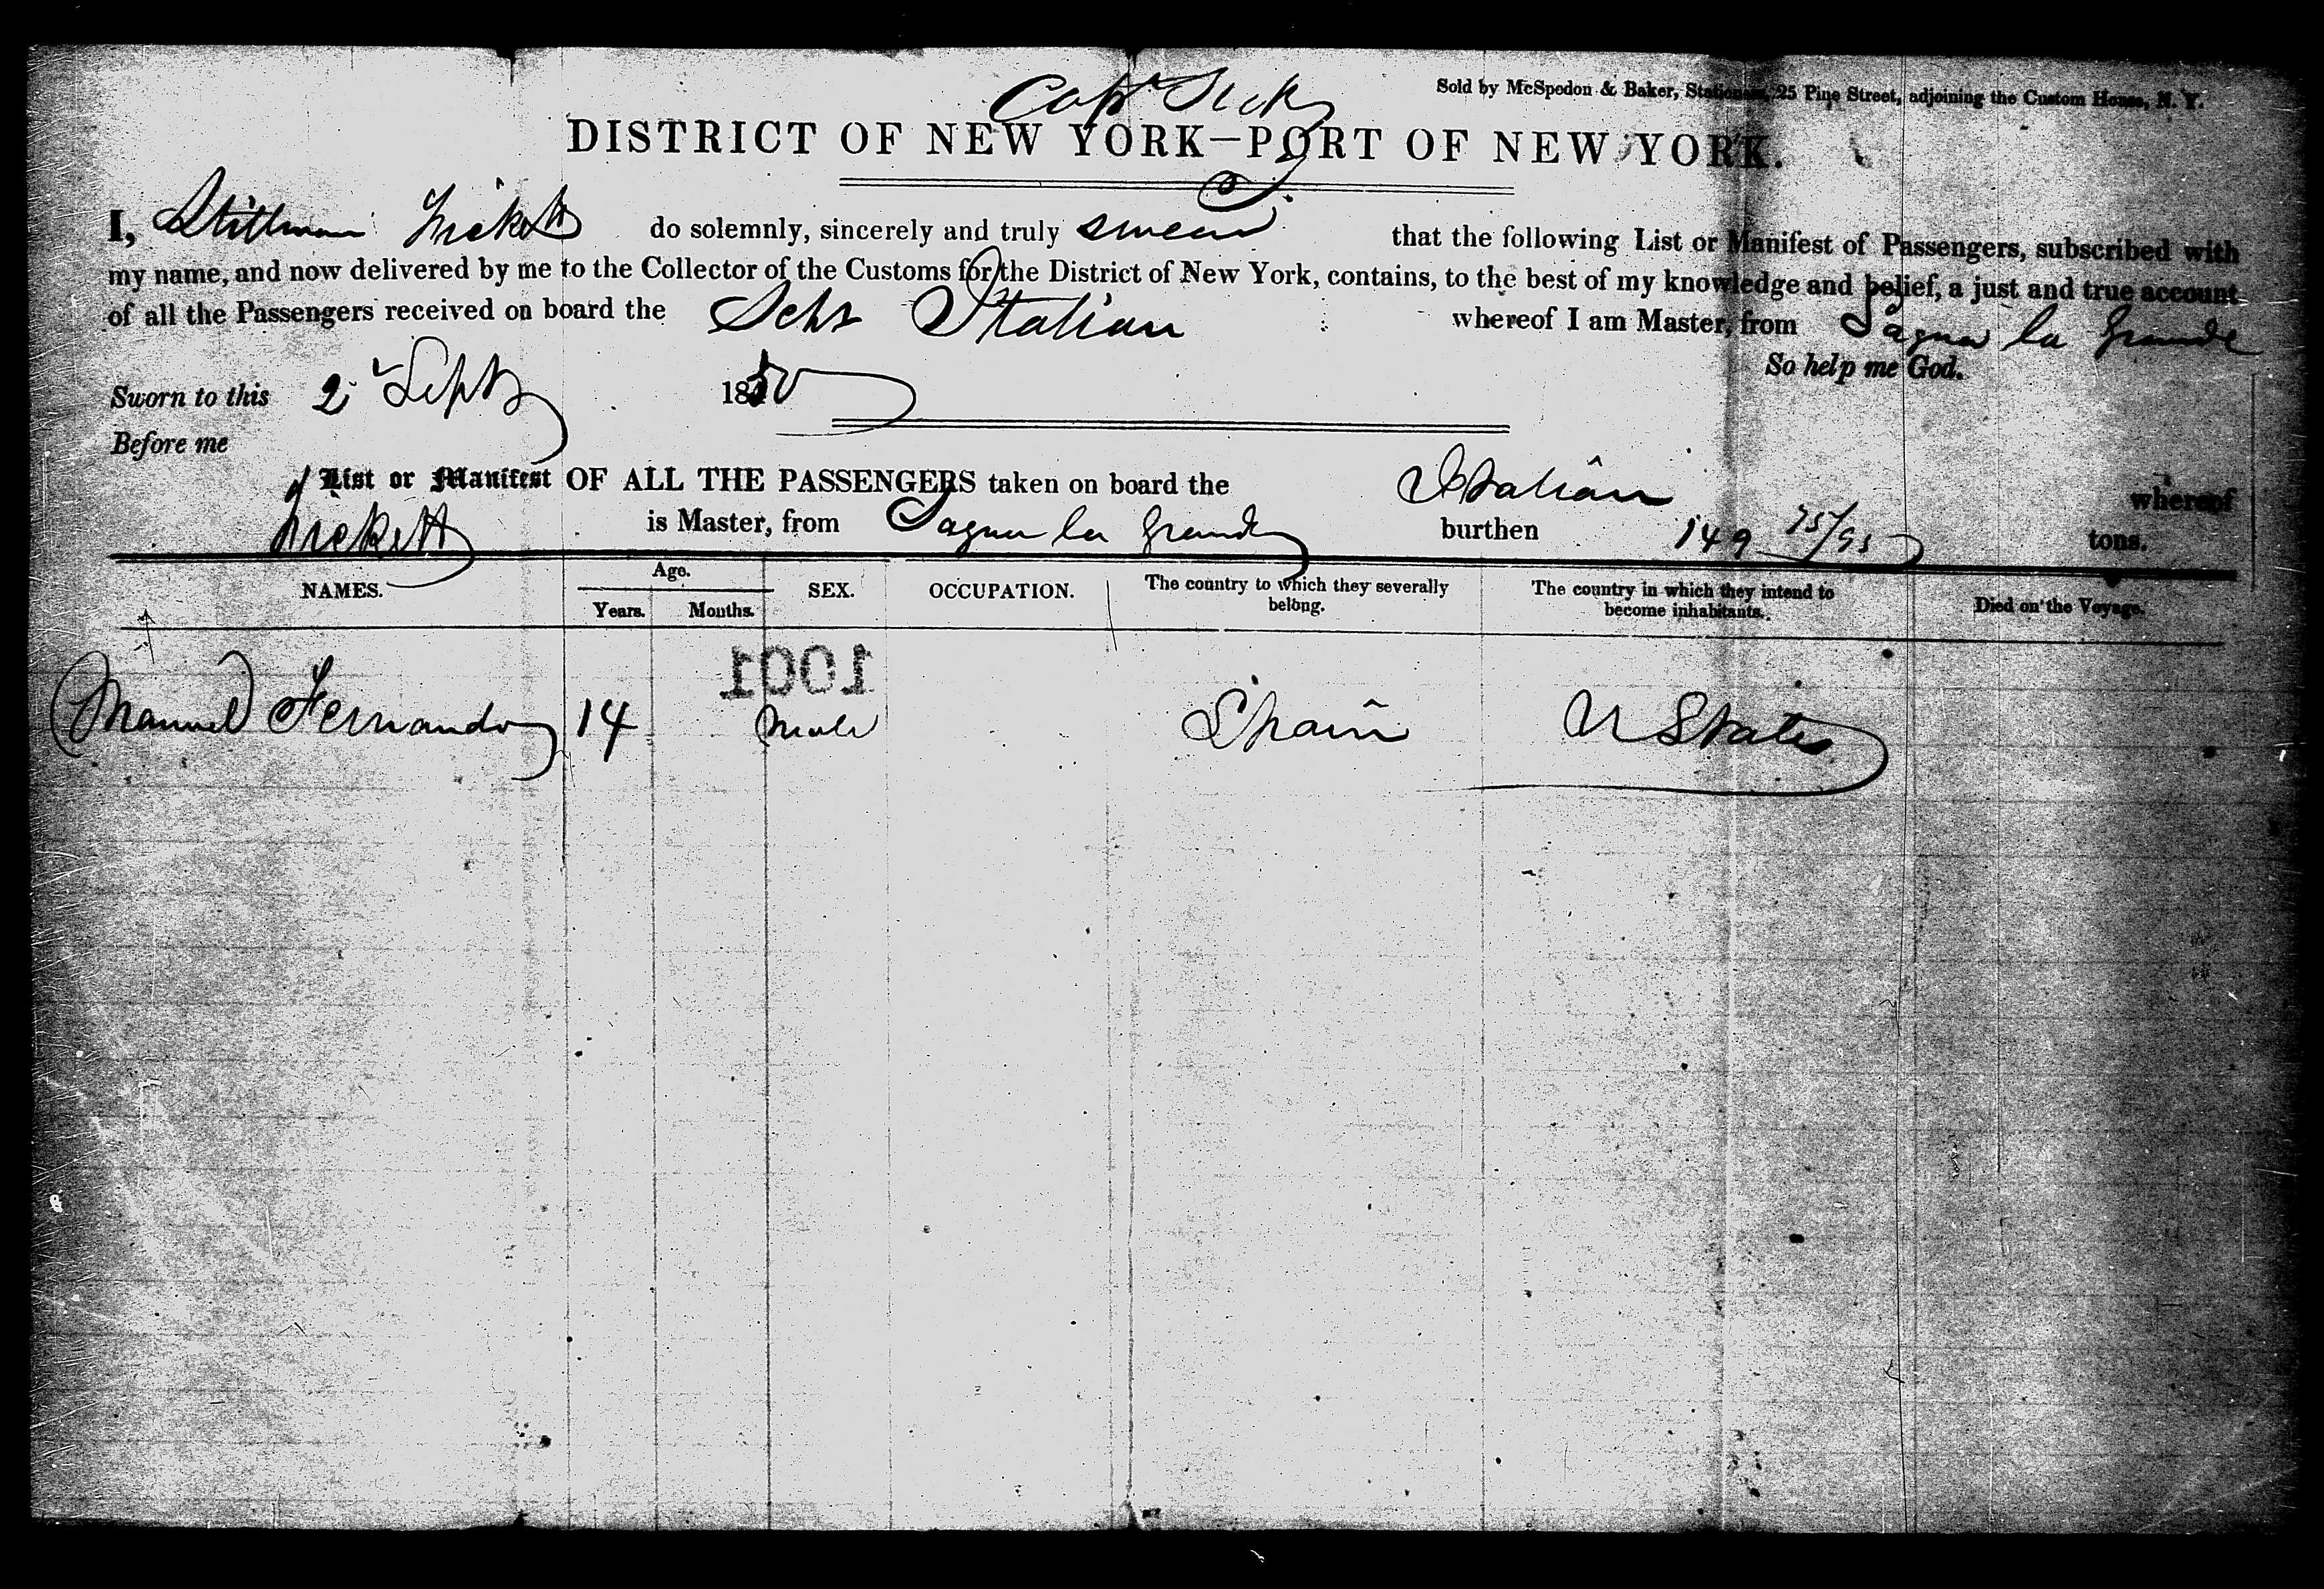 Capt Sick
Sold by McSpedon & Baker, Stationers, 25 Pine Street, adjoining the Custom House, N. Y.
DISTRICT OF NEW YORK—PORT OF NEW YORK.
I, Stillman do solemnly, sincerely and truly swear that the following List or Manifest of Passengers, subscribed with
my name, and now delivered by me to the Collector of the Customs for the District of New York, contains, to the best of my knowledge and belief, a just and true account
of all the Passengers received on board the Schr Italian whereof I am Master, from Sagua la Grande
So help me God.
Sworn to this 2 Sept 1850
Before me
List or Manifest OF ALL THE PASSENGERS taken on board the Italian whereof
is Master, from Sagua la Grande burthen 149 75/95 tons.
NAMES. Age. Years. Months. SEX. OCCUPATION. The country to which they severally belong. The country in which they intend to become inhabitants. Died on the Voyage.
1001
Manuel Fernandez 14 Male Spain U States